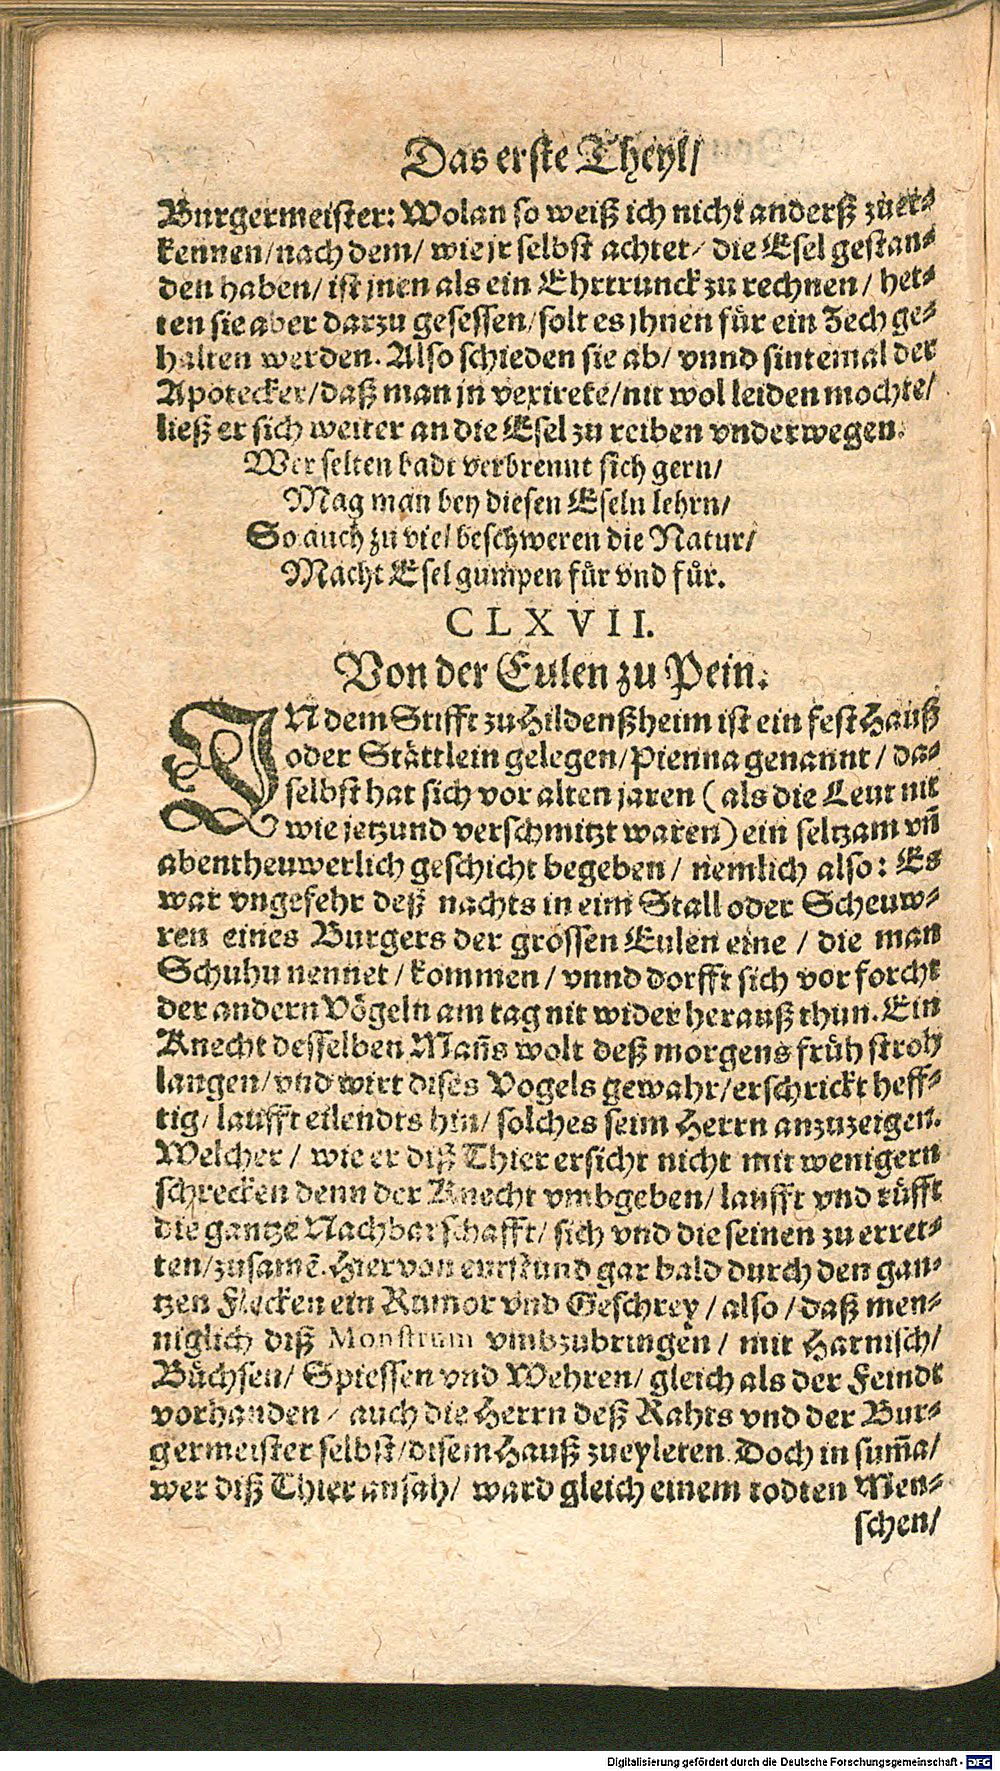 Das erste Theyl/
Burgermeister: Wolan so weiß ich nicht anderß zůer⸗
kennen/nach dem/ wie jr selbst achtet/ die Esel gestan⸗
den haben/ ist jnen als ein Ehrtrunck zu rechnen/ het⸗
ten sie aber darzu gesessen/solt es jhnen fůr ein Zech ge⸗
halten werden. Also schieden sie ab/ vnnd sintemal der
Apotecker/daß man jn vexirete/nit wol leiden mochte/
ließ er sich weiter an die Esel zu reiben vnderwegen.
Wer selten badt verbrennt sich gern/
Mag man bey diesen Eseln lehrn/
So auch zu viel beschweren die Natur/
Macht Esel gumpen fůr vnd fůr.
CLXVII.
Von der Eulen zu Pein.
JN dem Stifft zu Hildenßheim ist ein fest Hauß
oder Stättlein gelegen/Pienna genannt/ da⸗
selbst hat sich vor alten jaren (als die Leut nit
wie jetzund verschmitzt waren) ein seltzam vn̄
abentheuwerlich geschicht begeben/ nemlich also: Es
war vngefehr deß nachts in eim Stall oder Scheuw⸗
ren eines Burgers der grossen Eulen eine/ die man
Schuhu nennet/kommen/ vnnd dorfft sich vor forcht
der andern Vögeln am tag nit wider herauß thun. Ein
Knecht desselben Man̄s wolt deß morgens früh stroh
langen/vnd wirt dises Vogels gewahr/erschrickt heff⸗
tig/laufft eilendts hin/ solches seim Herrn anzuzeigen.
Welcher/ wie er diß Thier ersicht nicht mit wenigern
schrecken denn der Knecht vmbgeben/laufft vnd rüfft
die gantze Nachbarschafft/ sich vnd die seinen zu erret⸗
ten/zusamē. Hiervon entstund gar bald durch den gan⸗
tzen Flecken ein Rumor vnd Geschrey/also/daß men⸗
niglich diß Monstrum vmbzubringen/ mit Harnisch/
Büchsen/ Spiessen vnd Wehren/ gleich als der Feindt
vorhanden/ auch die Herrn deß Rahts vnd der Bur⸗
germeister selbst/disem Hauß zueyleten. Doch in sum̄a/
wer diß Thier ansah/ ward gleich einem todten Men⸗
schen/
Digitalisierung gefördert durch die Deutsche Forschungsgemeinschaft - DFG